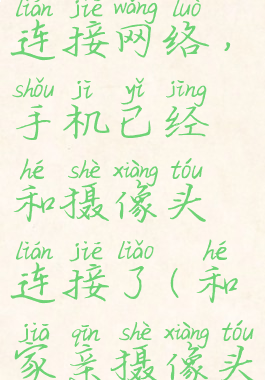 lián jiē wǎng luò
连接网络，
shǒu jī yǐ jīng
手机已经
hé shè xiàng tóu
和摄像头
lián jiē liǎo hé
连接了（和
jiā qīn shè xiàng tóu
家亲摄像头